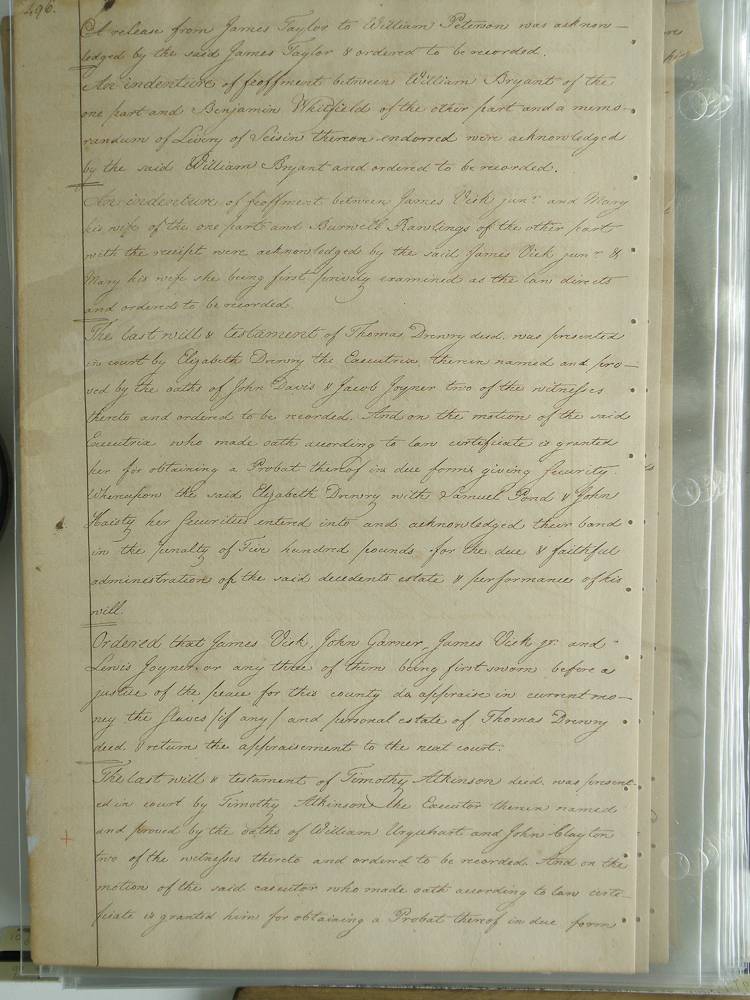 496.
A release from James Taylor to William Peterson was acknow-
ledged by the said James Taylor & ordered to be recorded.
An indenture of feoffment between William Bryant of the
one part and Benjamin Whitfield of the other part and a memo-
randum of Livery of Seisin thereon endorsed were acknowledged
by the said William Bryant and ordered to be recorded.
An indenture of feoffment between James Vick junr and Mary
his wife of the one part and Burwell Rawlings of the other part
with the receipt were acknowledged by the said James Vick junr &
Mary his wife she being first privily examined as the law directs
and ordered to be recorded
The last will & testament of Thomas Drewry decd. was presented
in court by Elizabeth Drewry the Executrix therein named and pro-
ved by the oaths of John Davis & Jacob Joyner two of the witnesses
thereto and ordered to be recorded. And on the motion of the said
Executrix who made oath according to law certificate is granted
her for obtaining a Probat thereof in due form giving security.
Whereupon the said Elizabeth Drewry with Samuel Pond & John
Haisty her securities entered into and acknowledged their bond
in the penalty of Five hundred pounds for the due & faithful
administration of the said decedents estate & performance of his
will.
Ordered that James Vick, John Garner, James Vick jr. and
Lewis Joyner, or any three of them being first sworn before a
justice of the peace for this county do appraise in current mo-
ney the slaves (if any) and personal estate of Thomas Drewry
decd & return the appraisement to the next court.
The last will & testament of Timothy Atkinson decd was present-
ed in court by Timothy Atkinson the Executor therein named
and proved by the oaths of William Urquhart and John Clayton
two of the witnesses thereto and ordered to be recorded. And on the
motion of the said executor who made oath according to law certi-
ficate is granted him for obtaining a Probat thereof in due form